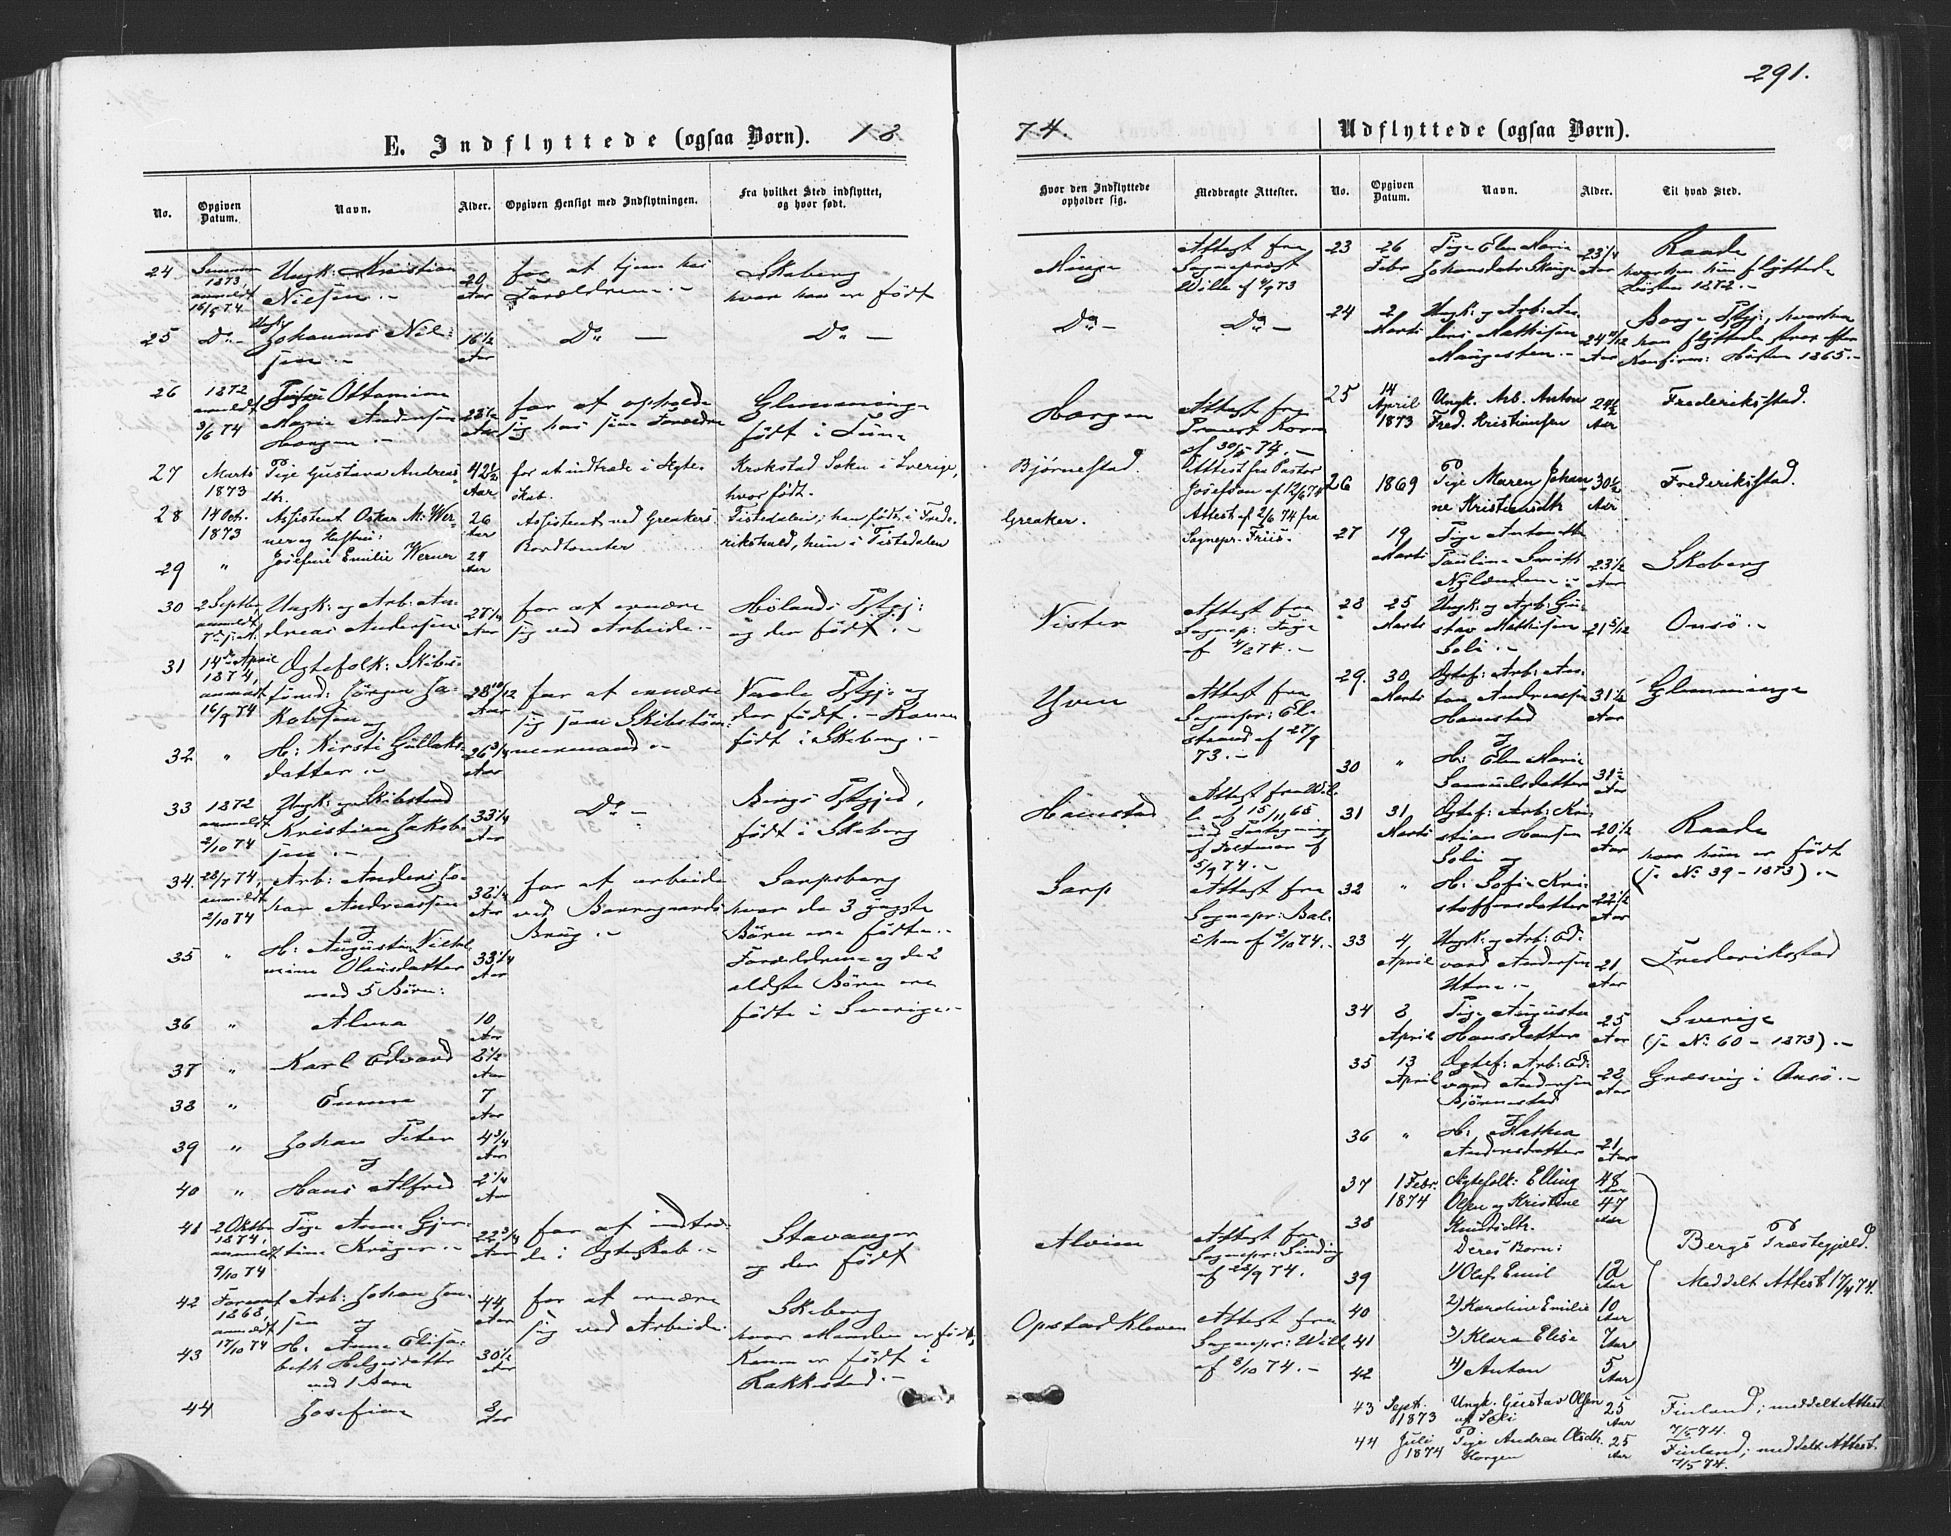 291.
E. Indflyttede (ogsaa Børn). 18
74. Udflyttede (ogsaa Børn).
No. Opgiven Datum. Navn. Alder. Opgiven Hensigt med Indflytningen. Fra hvilket Sted indflyttet, og hvor født.
Hvor den Indflyttede opholder sig. Medbragte Attester. No. Opgiven Datum. Navn. Alder. Til hvad Sted.
24 1873, anmeldt 16/5 74 Ungk: Kristian Nilsen.- 20 Aar for at tjene hos Forældrene.- Skeberg hvor han er født
Attest fra Sogneprest Wille af
25 Do- Ungk: Johannes Nilsen.- 16 1/2 Aar Do- Do-
Do- Do-
26 1872 anmeldt 3/6 74 Pige Ottomine Marie Andersen Horgen.- 23 1/2 Aar for at opholde sig hos sine Forældre Glemminge født i Tune
Horgen Attest fra af 30/5 74.-
27 Marts 1873 Pige Gustava Andreasdtr. 42 1/2 Aar for at indtræde i Ægteskab. Krokstad Sokn i Sverige, hvor født.
Bjørnestad. Attest fra Pastor Josefson af 12/6 74
28 14 Oct. 1873 Assistent Oskar M. Werner og Hustru: 26 Aar Assistent ved Greakers Bordtomter Tistedalen; han født i Frederikshald, hun i Tistedalen
Greaker. Attest af 2/6 74 fra Sognepr. Friis.
29 " Josefine Emilie Werner Aar
30 2 Septbr, anmeldt Ungk: og Arb: Andreas Andersen 27 1/4 Aar for at ernære sig ved Arbeide.- Hølands Pstgj: og der født.-
Nister Attest fra Sognepr:
31 14de April 1874, anmeldt 16/9 74 Ægtefolk: Skibstømd: Jørgen Jakobsen og 28 10/12 Aar for at ernære sig som Skibstømmermand.- Vaale Pstgj: og der født.- Konen født i Skeberg.-
Yven Attest fra Sognepr: Elstrand af 27/9 73.-
32 " H: Kirsti Gullaksdatter.- 26 3/4 Aar
33 1872 anmeldt 2/10 74 Ungk: og Skibstmd Kristian Jakobsen.- 33 1/4 Aar Do- Bergs Pstgjed, født i Skeberg
Hannestad Attest fra Wille af 15/11 65 med Paategning af af 5/9 74.-
34. 28/7 74, anmeldt 2/10 74 Arb: Anders Johan Andreassen og 32 1/4 Aar for at arbeide ved Borregaards Brug.- Sarpsborg hvor de 3 yngste Børn ere fødte.- Forældrene og de 2 ældste Børn ere fødte i Sverige.-
Sarp Attest fra Sognepr: af 2/10 74.-
35 " H: Augusta Vilhelmine Olausdatter med 5 Børn: 33 1/4 Aar
36 " Alma 10 Aar
37 " Karl Edvard 8 1/2 Aar
38 " Emma 7 Aar
39 " Johan Peter og 4 3/4 Aar
40 " Hans Alfred 2 1/4 Aar
41 2 Oktbr 1874, anmeldt 9/10 74 Pige Anne Gjertine Krøger.- 22 3/4 Aar for at indtræde i Ægteskab.- Stavanger og der født
Alvim Attest fra Sognepr: af 28/9 74.
42 1868, anmeldt 17/10 74 Arb: Johan Jensen og 44 Aar for at ernære sig ved Arbeide Skeberg hvor Manden er født, Konen er født i Rakkestad.-
Opstad Kleven Attest fra Sognepr: Wille af 8/10 74.-
43 H: Anne Elisabeth Helgesdatter med 1 Barn 30 1/2 Aar
44 Josefine 8 Aar
23 26 Febr Pige Elen Marie Johansdatr 23 1/4 Aar Raade hvorhen hun flyttede Høsten 1872.-
24 2 Marts Ungk: og Arb: Anders Mathisen Haugesten.- 24 11/12 Aar Borge Pstgj:, hvorhen han flyttede strax efter Konfirm: Høsten 1865.-
25 14 April 1873 Ungk. Arb. Anton Fred. Kristiansen 24 1/2 Aar Frederiksstad.
26 1869 Pige Maren Johanne Kristiansdtr 30 1/2 Aar Frederiksstad.
27 19 Marts Pige Antonette Pauline Smith Nylænden.- 23 1/2 Aar Skeberg
28 25 Marts Ungk: og Arb: Gustav Mathisen Soli.- 21 5/12 Onsø.-
29. 30 Marts Ægtef: Arb: Anton Andreassen Hannestad og 31 1/2 Aar Glemminge
30 " H: Elen Marie Samuelsdatter 31 1/2 Aar
31 31 Marts Ægtef: Arb: Kristian Hansen Soli og 20 1/2 Aar Raade hvor hun er født (se No: 39 - 1873).-
32 " H: Sofie Kristoffersdatter 22 1/2 Aar
33 4 April Ungk: og Arb: Edvard Andersen Utne.- 21 Aar Frederiksstad
34 8 April Pige Augusta Hansdatter 25 Aar Sverige (se No: 60 - 1873).-
35 13 April Ægtef: Arb: Edvard Andersen Bjørnestad 22 Aar Græsvig i Onsø.-
36 " H: Andersdatter 21 Aar
37 1 Febr. 1874 Ægtefolk: Elling Olsen og Kristine 48 Aar
38 Knudsdtr. 47 Aar
Deres Børn: Bergs Præstegjeld.
39 1) Olaf Emil 12 Aar Meddelt Attest 17/4 74.
40 2) Karoline Emilie 10 Aar
41 3) Klara Elise 7 Aar
42 4) Anton 5 Aar
43 Sept. 1873 Ungk. Gustav Olsen af Soli 25 Aar Finland; meddelt Attest 7/5 74.
44 Juli 1874 Pige Andrea Olsdtr. Horgen 25 Aar Finland; meddelt Attest. 7/5 74.